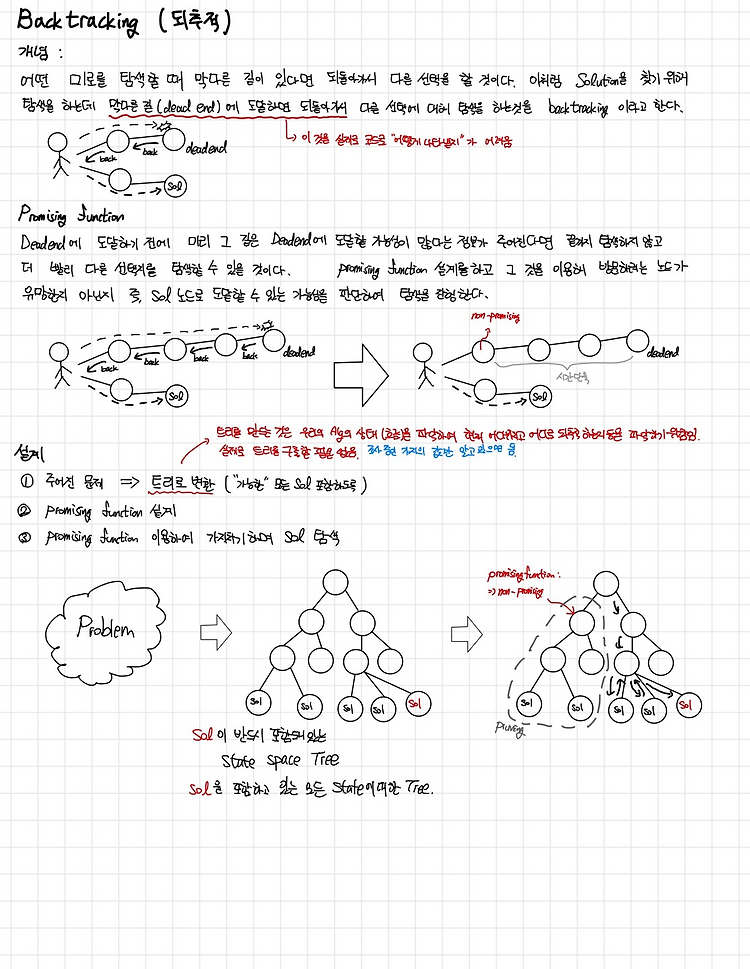 Backtracking (되추적)
개념 :
어떤 미로를 탐색할 때 막다른 길이 있다면 되돌아가서 다른 선택을 할 것이다. 이처럼 Solution을 찾기 위해
탐색을 하는데 막다른 길(dead end)에 도달하면 되돌아가서 다른 선택에 대해 탐색을 하는것을 backtracking 이라고 한다.
back
back
deadend
Sol
이 것을 실제로 코드로 "어떻게 나타낼지"가 어려움
Promising function
Deadend에 도달하기 전에 미리 그 길은 Deadend에 도달할 가능성이 많다는 정보가 주어진다면 끝까지 탐색하지 않고
더 빨리 다른 선택지를 탐색할 수 있을 것이다. promising function 설계를하고 그 것을 이용해 방문하려는 노드가
유망한지 아닌지 즉, Sol 노드로 도달할 수 있는 가능성을 판단하여 탐색을 진행한다.
back
back
back
back
deadend
Sol
non-promising
deadend
시간단축
Sol
트리를 만드는 것은 우리의 Alg의 상태(흐름)을 파악하여 현재 어디이고 어디로 되추적 하는지 등을 파악하기 위함임.
실제로 트리를 구축할 필요 없음.
설계
① 주어진 문제 ⇒ 트리로 변환 ("가능한" 모든 Sol 포함하도록)
② promising function 설계
③ promising function 이용하여 가지치기하며 Sol 탐색
Problem
Sol
Sol
Sol
Sol
Sol
promising function :
⇒ non-promising
Sol
Sol
Sol
Sol
Sol
Pruning
Sol이 반드시 포함돼있는
State space Tree
Sol을 포함하고 있는 모든 State에 대한 Tree.